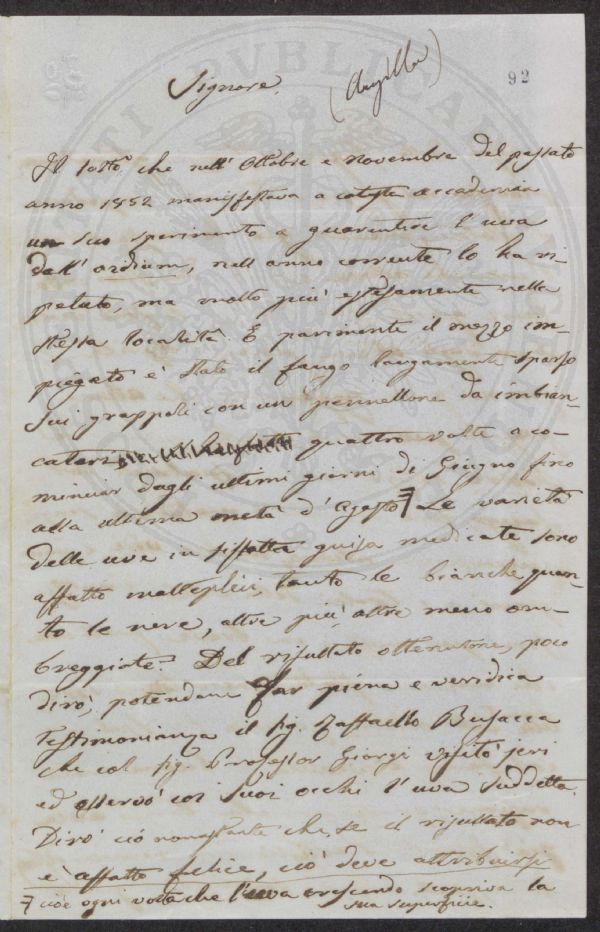 92
Signore.
(Argilla)
Il sotto che nell' Ottobre e Novembre del passato
anno 1852 manifestava a cotesta Accademia
un suo sperimento a guarentire l'uva
dall' oidium, nell' anno corrente lo ha ri-
petuto, ma molto più estesamente nella
stessa località. E parimente il mezzo im-
piegato è stato il fango largamente sparso
sui grappoli con un pennellone da imbian-
catori quattro volte a co-
minciar dagli ultimi giorni di Giugno fino
alla ultima metà d'Agosto Le varietà
delle uve in siffatta guisa medicate sono
affatto molteplici, tanto le bianche quan-
to le nere, altre più, altre meno om-
breggiate. Del risultato ottenutone, poco
dirò, potendone far piena e veridica
testimonianza il Sig. Raffaello Busacca
che col Sig. Professor Giorgi visitò jeri
ed osservò coi suoi occhi l'uva suddetta.
Dirò ciò nonostante che, se il risultato non
è affatto felice, ciò deve attribuirsi
cioè ogni volta che l'uva crescendo scopriva la
sua superficie.